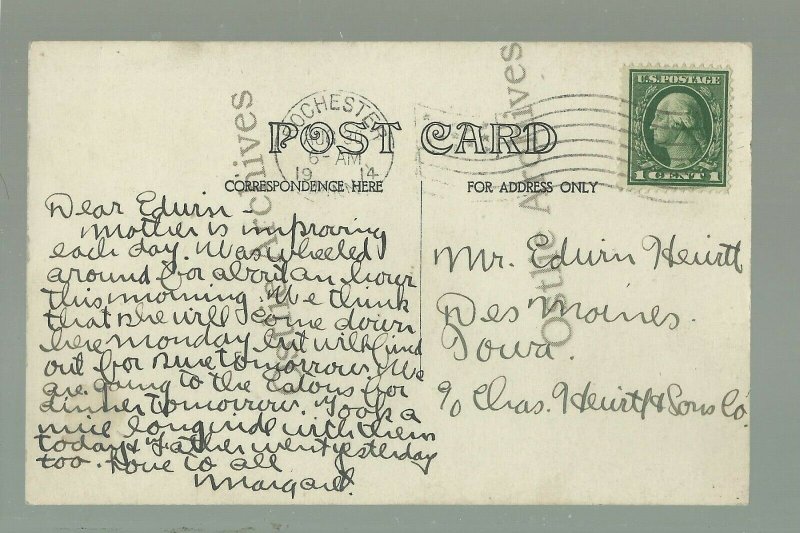 POST CARD
CORRESPONDENCE HERE
FOR ADDRESS ONLY
ROCHESTER
AUG 30
6-AM
1914
MINN.
U.S. POSTAGE
1 CENT 1
Osture Archives
Osture Archives
Dear Edwin -
Mother is improving
each day. Was wheeled
around for about an hour
this morning. We think
that she will come down
here monday but will find
out for sure tomorrow. We
are going to the Eatons for
dinner tomorrow. Took a
nice long ride with them
today & Father went yesterday
too. Love to all
Margaret.
Mr. Edwin Hewitt
Des Moines.
Iowa.
c/o Chas. Hewitt & Sons Co.